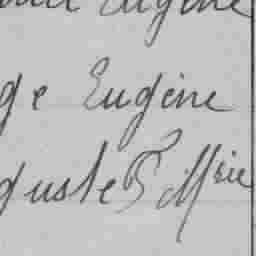 Eugène
ge Eugène
guste Mrie